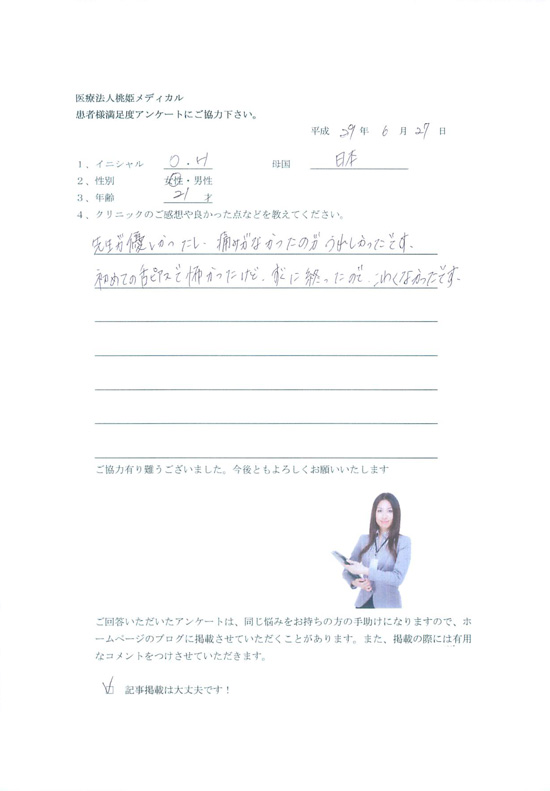 医療法人桃姫メディカル
患者様満足度アンケートにご協力下さい。
平成 29 年 6 月 27 日
1、イニシャル O.H 母国 日本
2、性別 女性・男性
3、年齢 21 才
4、クリニックのご感想や良かった点などを教えてください。
先生が優しかったし、痛みがなかったのがうれしかったです。
初めての舌ピアスで怖かったけど、すぐに終ったので、こわくなかったです。
ご協力有り難うございました。今後ともよろしくお願いいたします
ご回答いただいたアンケートは、同じ悩みをお持ちの方の手助けになりますので、ホ
ームページのブログに掲載させていただくことがあります。また、掲載の際には有用
なコメントをつけさせていただきます。
記事掲載は大丈夫です！